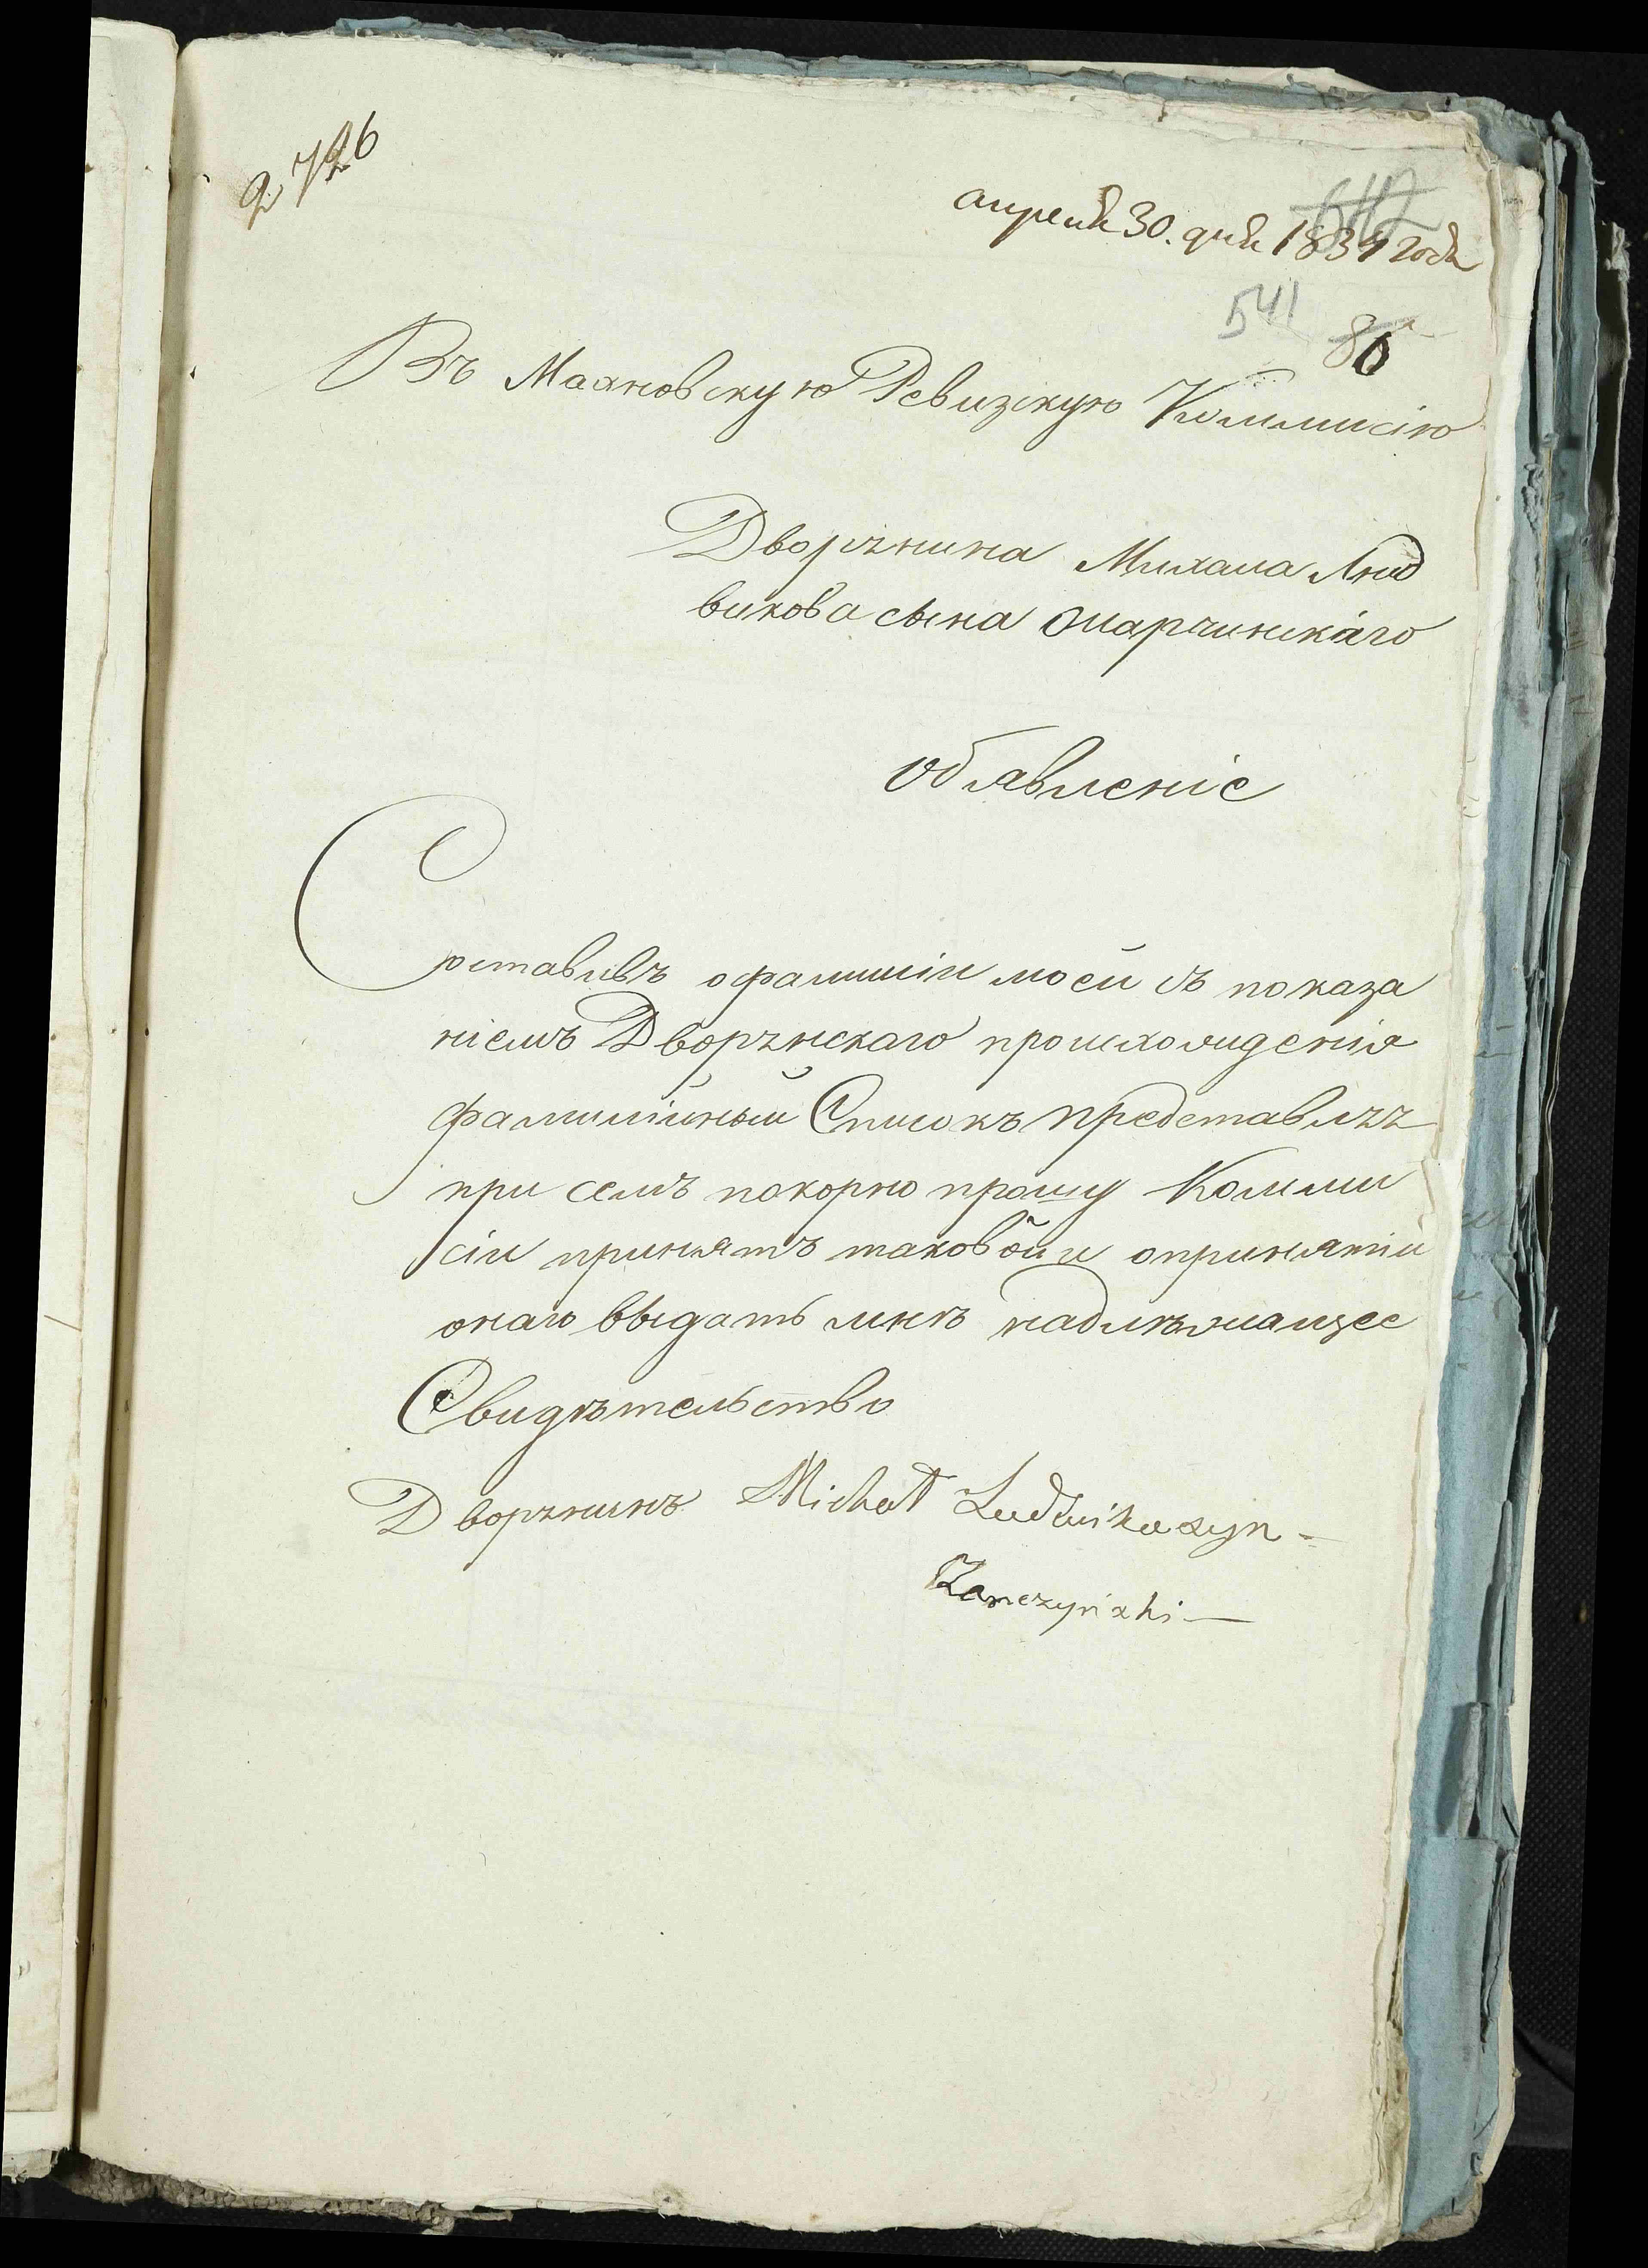 2726
апреля 30. дня 1834 года
541
86
Въ Махновскую Ревизскую Коммисію
Дворянина Михала Люд
викова сына
обявленіе
Составивъ о фамиліи моей съ показа
ніемъ Дворянскаго происхожденія
фамилійный Списокъ представляя
при семъ покорно прошу Комми
сіи принятъ таковой и о принятіи
онаго выдать мнѣ надлѣжащее
Свидѣтельство
Дворянинъ Michał Ludwika syn